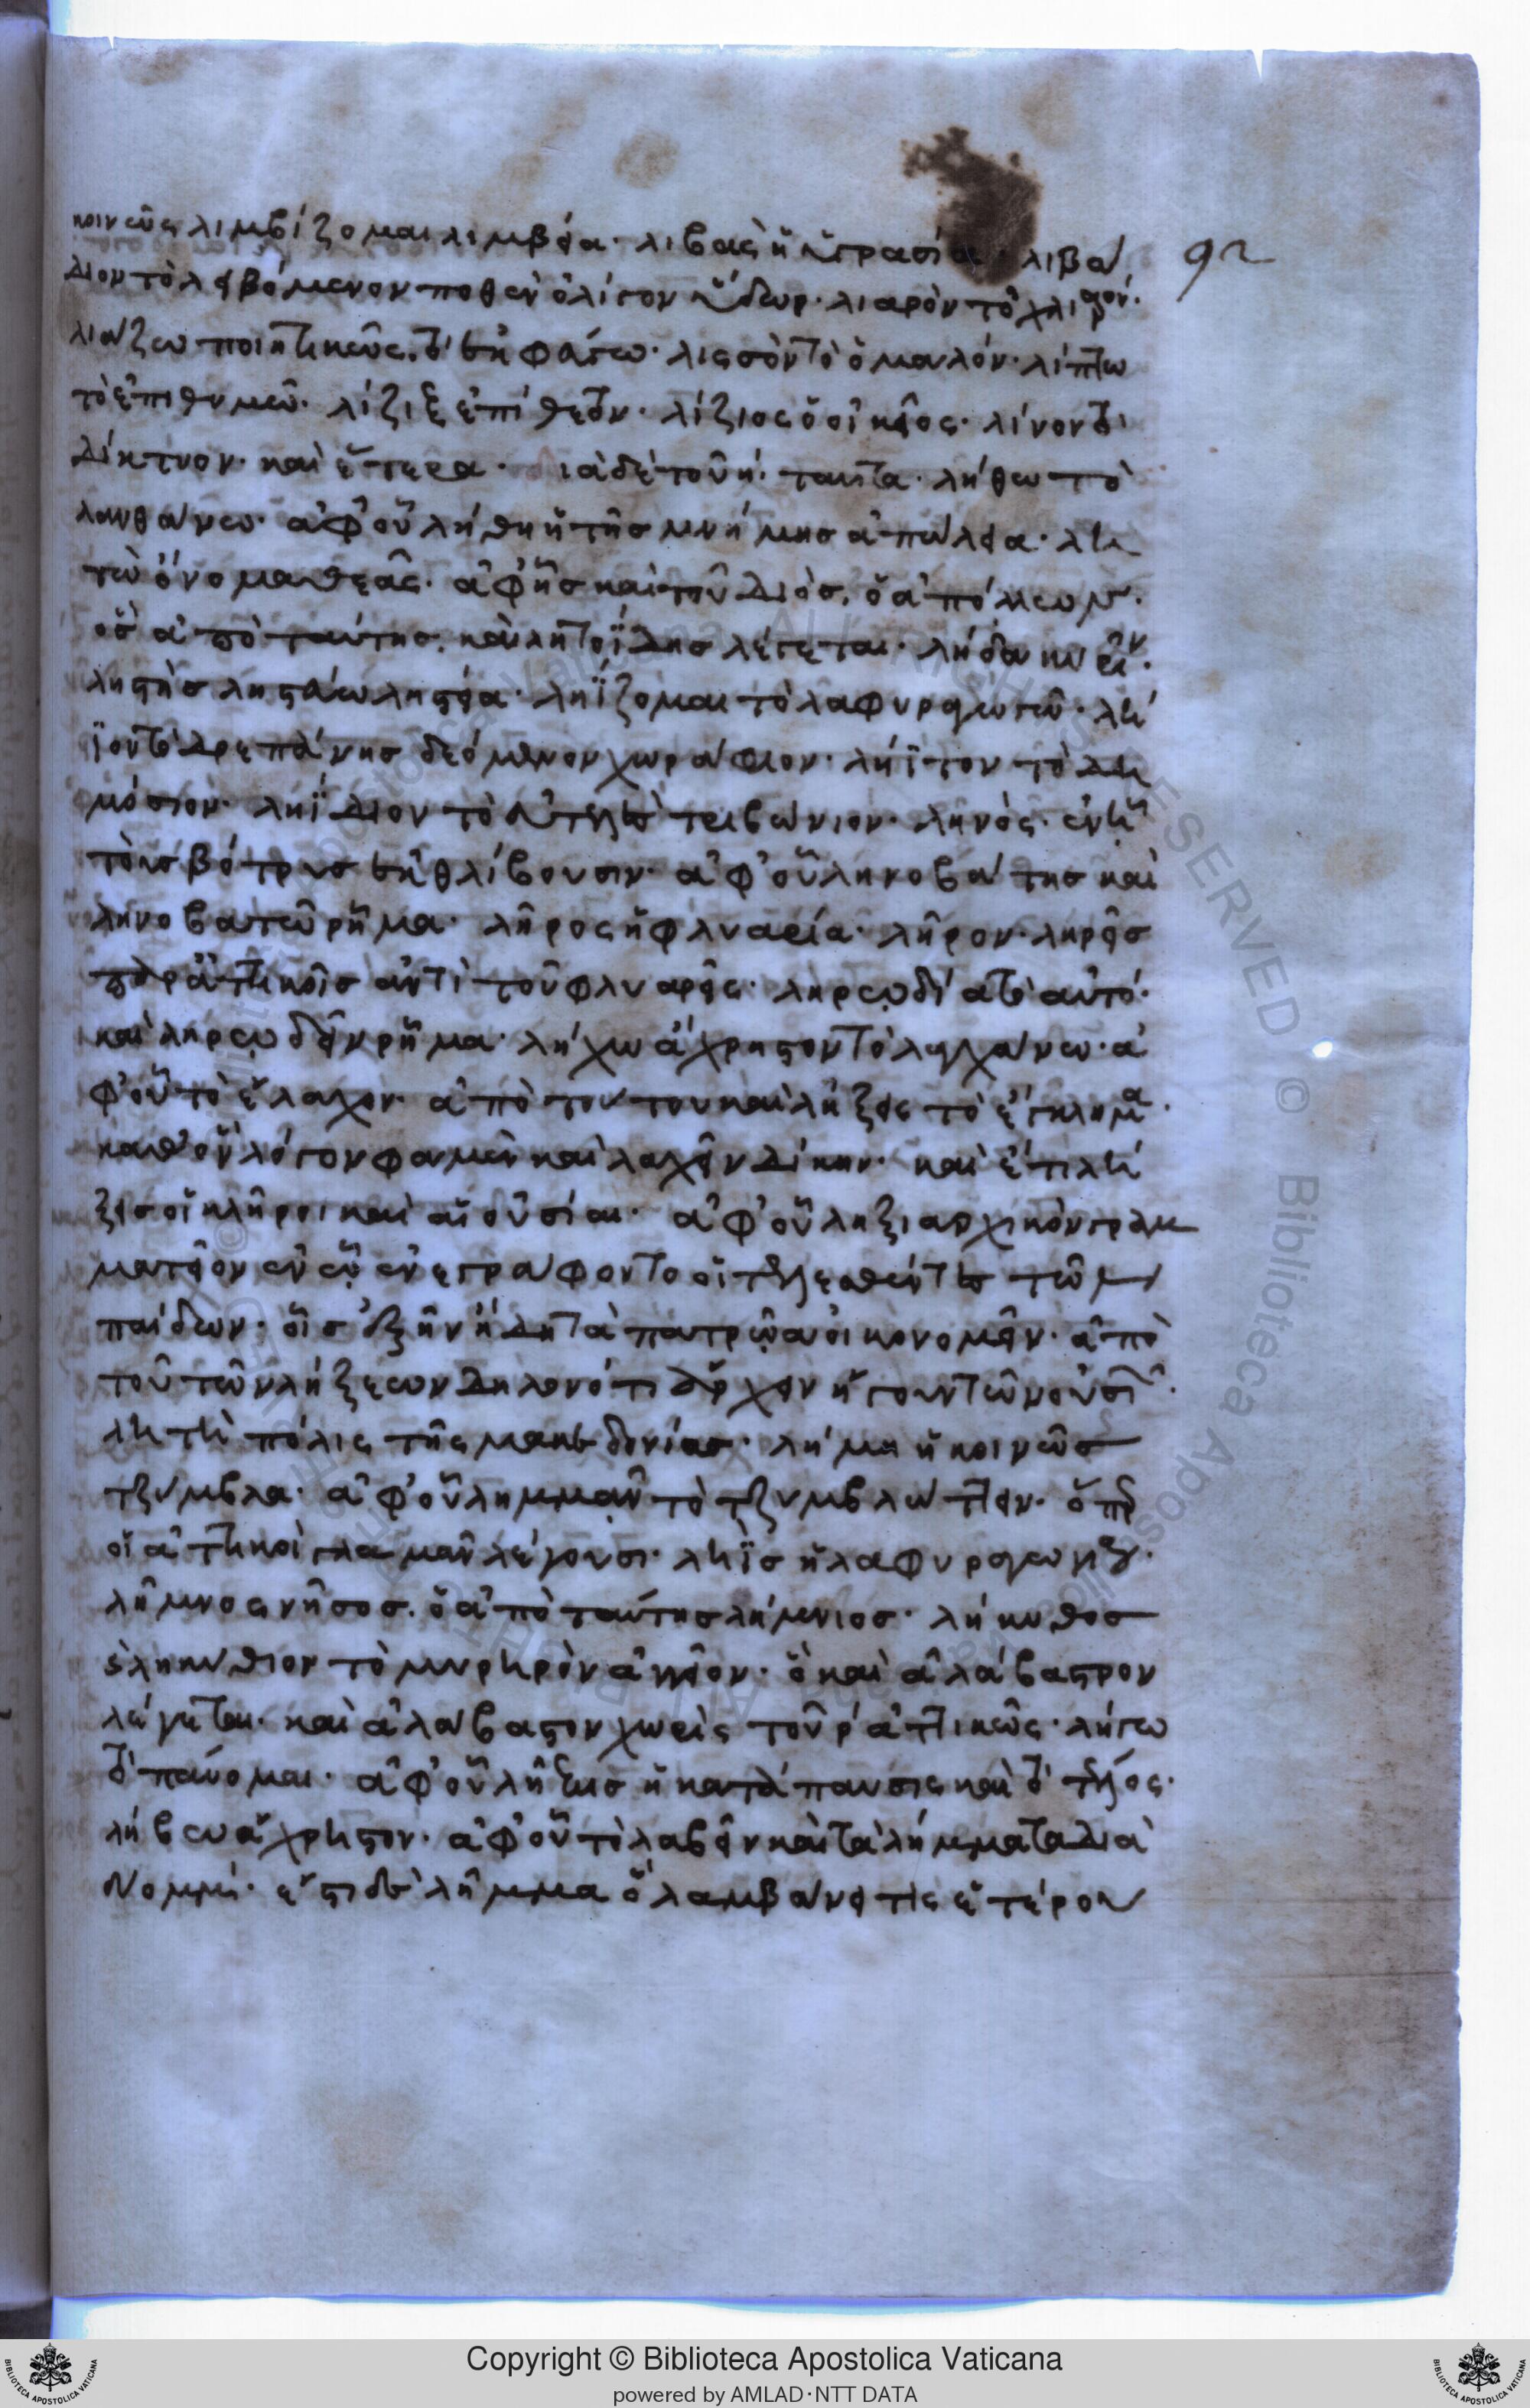 κοινῶς λιμβίζομαι λιμβεία· λιβὰς ἡ ὑγρασία· λιβά 92
διον τὸ λειβόμενον ποθὲν ὀλίγον ὕδωρ· λιαρὸν τὸ χλιαρόν·
λιάζω ποιητικῶς, τὸ φάγω· λισσὸν τὸ ὁμαλόν· λίπτω
τὸ ἐπιθυμῶ· λίζιξ ἐπίθετον· λίζιος ὁ οἰκεῖος· λίνον τὸ
δίκτυον· καὶ ἕτερα· διὰ δὲ τοῦ η· ταῦτα· λήθω τὸ
λανθάνω· ἀφ' οὗ λήθη ἡ τῆς μνήμης ἀπώλεια· λη
τὼ ὄνομα θεᾶς· ἀφ' ἧς καὶ τοῦ Διὸς, ὁ ἀπόλλων·
ὃς ἀπὸ ταύτης· καὶ λητοΐδης λέγεται· λήδα κύριον·
ληστὴς ληστεύω ληστεία· ληΐζομαι τὸ λαφυραγωγῶ· λή
ϊον τὸ δρεπάνης δεόμενον χωράφιον· λήϊτον τὸ δη
μόσιον· ληΐδιον τὸ εὐτελὲς τριβώνιον· ληνός· ἐν ᾗ
τοὺς βότρυς ἐκθλίβουσιν· ἀφ' οὗ ληνοβάτης καὶ
ληνοβατῶ ῥῆμα· λῆρος ἡ φλυαρία· λῆρον· ληρεῖς
παρ' ἀττικοῖς ἀντὶ τοῦ φλυαρεῖς· ληρῳδία τὸ αὐτό·
καὶ ληρῳδεῖν ῥῆμα· λήχω ἄχρηστον τὸ λαγχάνω· ἀ
φ' οὗ τὸ ἔλαχον· ἀπὸ τούτου καὶ λῆξις τὸ ἔγκλημα·
καθ' ὃν λόγον φαμὲν καὶ λαχεῖν δίκην· καὶ ἔτι λή
ξεις οἱ κλῆροι καὶ αἱ οὐσίαι· ἀφ' οὗ ληξιαρχικὸν γραμ
ματεῖον ἐν ᾧ ἐνεγράφοντο οἱ τελεσθέντες τῶν
παίδων· οἷς ἐξῆν ἤδη τὰ πατρῷα οἰκονομεῖν· ἀπὸ
τοῦ τῶν λήξεων δηλονότι ἄρχειν ἤγουν τῶν οὐσιῶν·
λητὴ πόλις τῆς μακεδονίας· λήμη ἡ κοινῶς
τζύμβλα· ἀφ' οὗ λημμᾷν τὸ τζυμβλώττειν· ὅπερ
οἱ ἀττικοὶ γλαμᾶν λέγουσι· ληῒς ἡ λαφυραγωγία·
λῆμνος νῆσος. ὁ ἀπὸ ταύτης λήμνιος· λήκυθος
καὶ ληκύθιον τὸ μυρηρὸν ἀγγεῖον· ὃ καὶ ἀλάβαστρον
λέγεται· καὶ ἀλάβαστον χωρὶς τοῦ ρ ἀττικῶς· λήγω
τὸ παύομαι· ἀφ' οὗ λῆξις ἡ κατάπαυσις καὶ τὸ τέλος·
λήβω ἄχρηστον· ἀφ' οὗ τὸ λαβεῖν καὶ τὰ λήμματα διὰ
δύο μμ· ἔστι δὲ λῆμμα ὃ λαμβάνει τις ἑτέρου
Copyright © Biblioteca Apostolica Vaticana
powered by AMLAD·NTT DATA